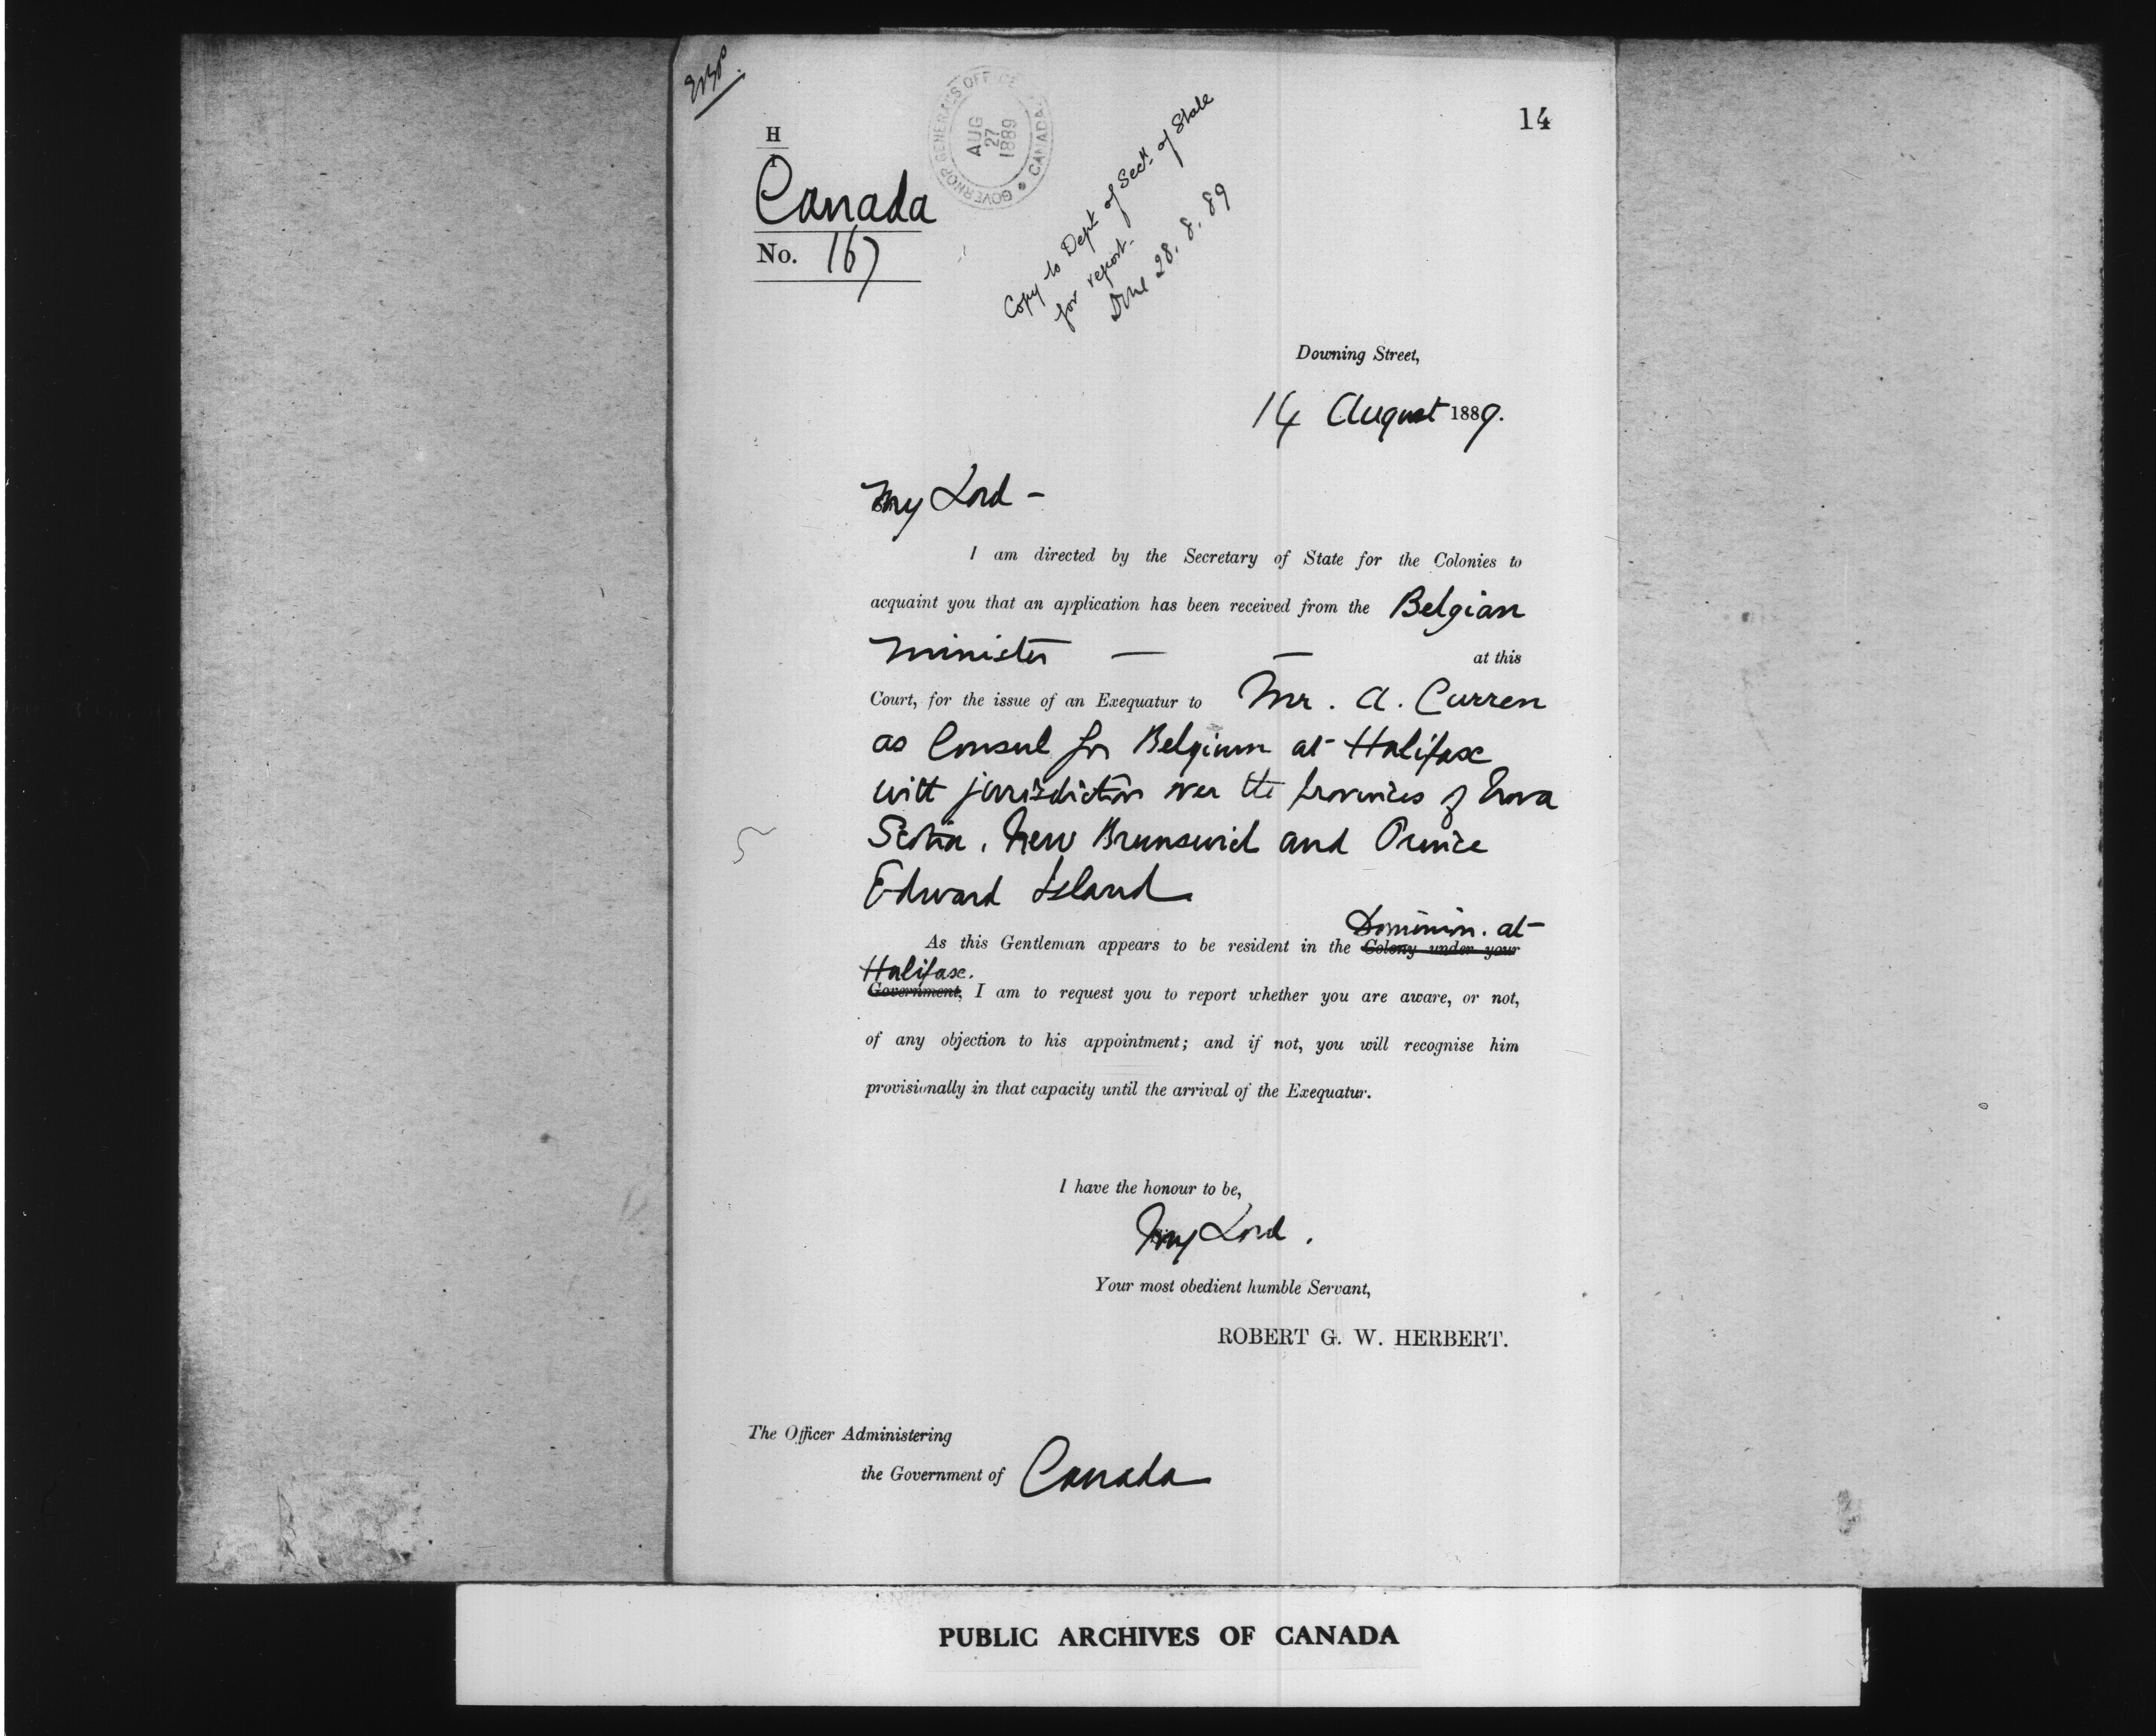 14
GOVERNOR GENERAL'S OFFICE
AUG
27
1889
CANADA
H
1
Canada
No. 167
Copy to Dept of Secy. of State
for report.
Done 28. 8. 89
Downing Street,
14 August 1889.
My Lord -
I am directed by the Secretary of State for the Colonies to
acquaint you that an application has been received from the Belgian
Minister — — at this
Court, for the issue of an Exequatur to Mr. A. Curren
as Consul for Belgium at Halifax
with jurisdiction over the provinces of Nova
Scotia, New Brunswick and Prince
Edward Island
Dominion. at
As this Gentleman appears to be resident in the Colony under your
Halifax.
Government, I am to request you to report whether you are aware, or not,
of any objection to his appointment; and if not, you will recognise him
provisionally in that capacity until the arrival of the Exequatur.
I have the honour to be,
My Lord.
Your most obedient humble Servant,
ROBERT G. W. HERBERT.
The Officer Administering
the Government of Canada
PUBLIC ARCHIVES OF CANADA